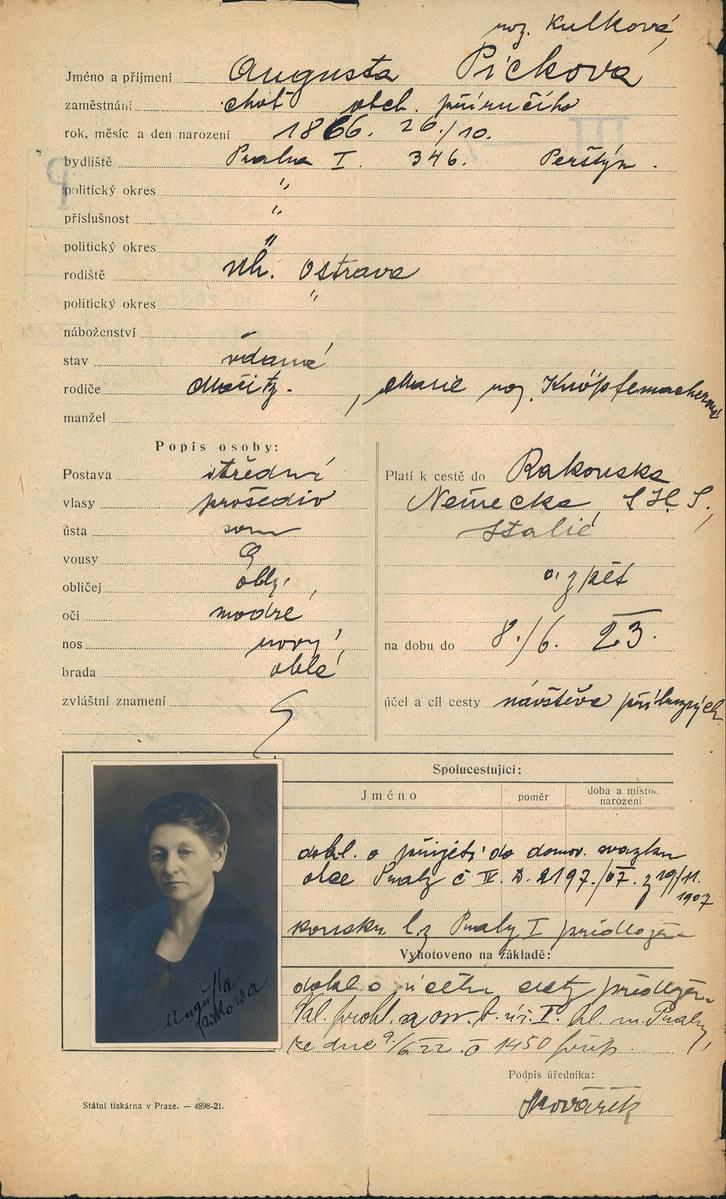 roz. Kulková
Jméno a příjmení Augusta Picková
zaměstnání choť obch. příručího
rok, měsíc a den narození 1866. 26./10.
bydliště Praha I. 346. Perštýn.
politický okres "
příslušnost "
politický okres "
rodiště Uh. Ostrava
politický okres "
náboženství
stav vdaná
rodiče Moritz. , Marie roz. Knöpfelmacherová
manžel
Popis osoby:
Postava střední
vlasy prošediv
ústa
vousy
obličej oblý
oči modré
nos rovný
brada oblé
zvláštní znamení
Platí k cestě do Rakouska
Německa, S.H.S.,
Italie
a zpět
na dobu do 8./6. 23.
účel a cíl cesty návštěva příbuzných
Spolucestující:
Jméno poměr doba a místo narození
dokl. o přijetí do domov. svazku
obce Prahy č IV. D. 2197./07. z 19/11.
1907
konsku. l. z Prahy I předložen
Vyhotoveno na základě:
dokl. o účelu cesty předložen
Kal. prohl. a osv. b. úř. I. hl. m. Prahy,
ze dne 9./6 22. č 1450 příp.
Augusta
Picková
Podpis úředníka:
Kovářík
Státní tiskárna v Praze. — 4898-21.